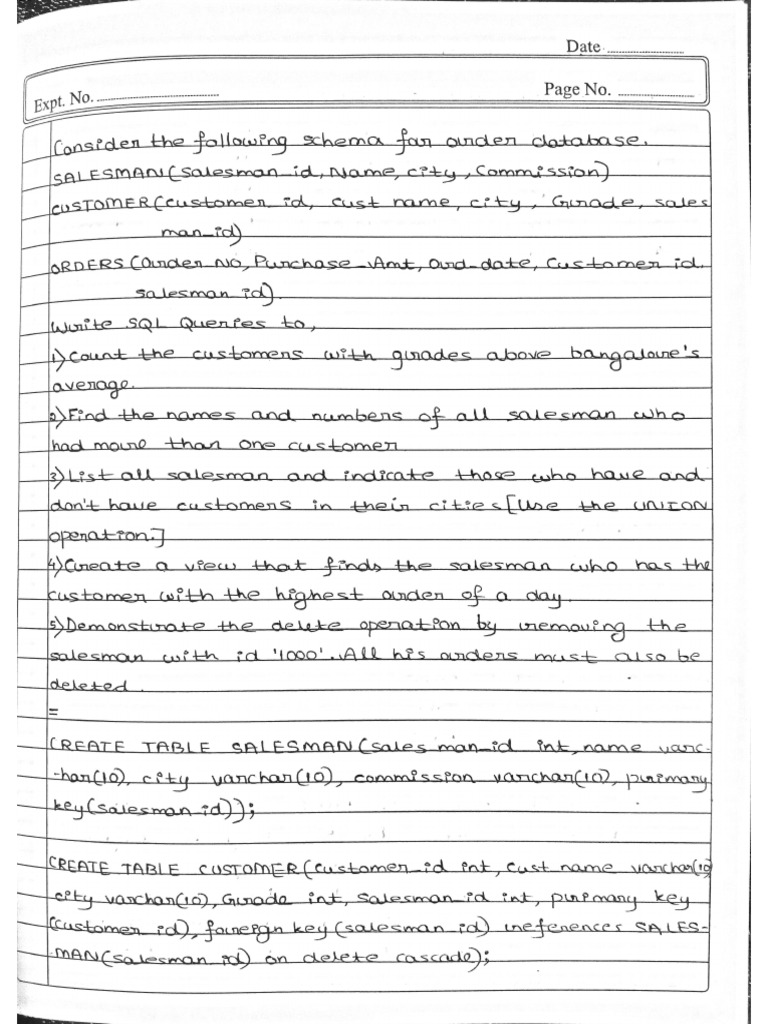 Date
Expt. No.
Page No.
Consider the following schema for order database.
SALESMAN(Salesman id, Name, city, Commission)
CUSTOMER(Customer id, cust name, city, Grade, sales
man_id)
ORDERS (Order No, Purchase_Amt, ord-date, Customer id.
salesman id).
Write SQL Queries to,
1) Count the customers with grades above bangalore's
average.
2) Find the names and numbers of all salesman who
had more than one customer.
3) List all salesman and indicate those who have and
don't have customers in their cities [Use the UNION
operation.]
4) Create a view that finds the salesman who has the
customer with the highest order of a day.
5) Demonstrate the delete operation by removing the
salesman with id '1000'. All his orders must also be
deleted.
=
CREATE TABLE SALESMAN(sales man_id int, name varc-
-har(10), city varchar(10), commission varchar(10), primary
key(salesman id));
CREATE TABLE CUSTOMER(customer_id int, cust name varchar(10)
city varchar(10), Grade int, salesman_id int, primary key
(customer id), foreign key(salesman id) references SALES-
-MAN(salesman id) on delete cascade);